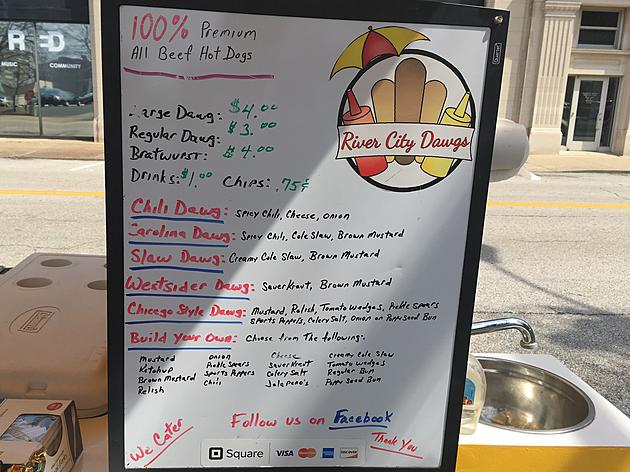 R ED
MUSIC COMMUNITY
100% Premium
All Beef Hot Dogs
River City Dawgs
Large Dawg: $4.00
Regular Dawg: $3.00
Bratwurst: $4.00
Drinks: $1.00 Chips: .75¢
Chili Dawg: Spicy Chili, Cheese, Onion
Carolina Dawg: Spicy Chili, Cole Slaw, Brown Mustard
Slaw Dawg: Creamy Cole Slaw, Brown Mustard
Westsider Dawg: Sauerkraut, Brown Mustard
Chicago Style Dawg: Mustard, Relish, Tomato Wedges, Pickle Spears
Sports Peppers, Celery Salt, Onion on Poppy Seed Bun
Build Your Own: Choose from The following:
Mustard Onion Cheese Creamy Cole Slaw
Ketchup Pickle Spears Sauerkraut Tomato Wedges
Brown Mustard Sports Peppers Celery Salt Regular Bun
Relish Chili Jalapeno's Poppy Seed Bun
We Cater
Follow us on Facebook
Thank You
Square VISA MasterCard AMEX DISCOVER